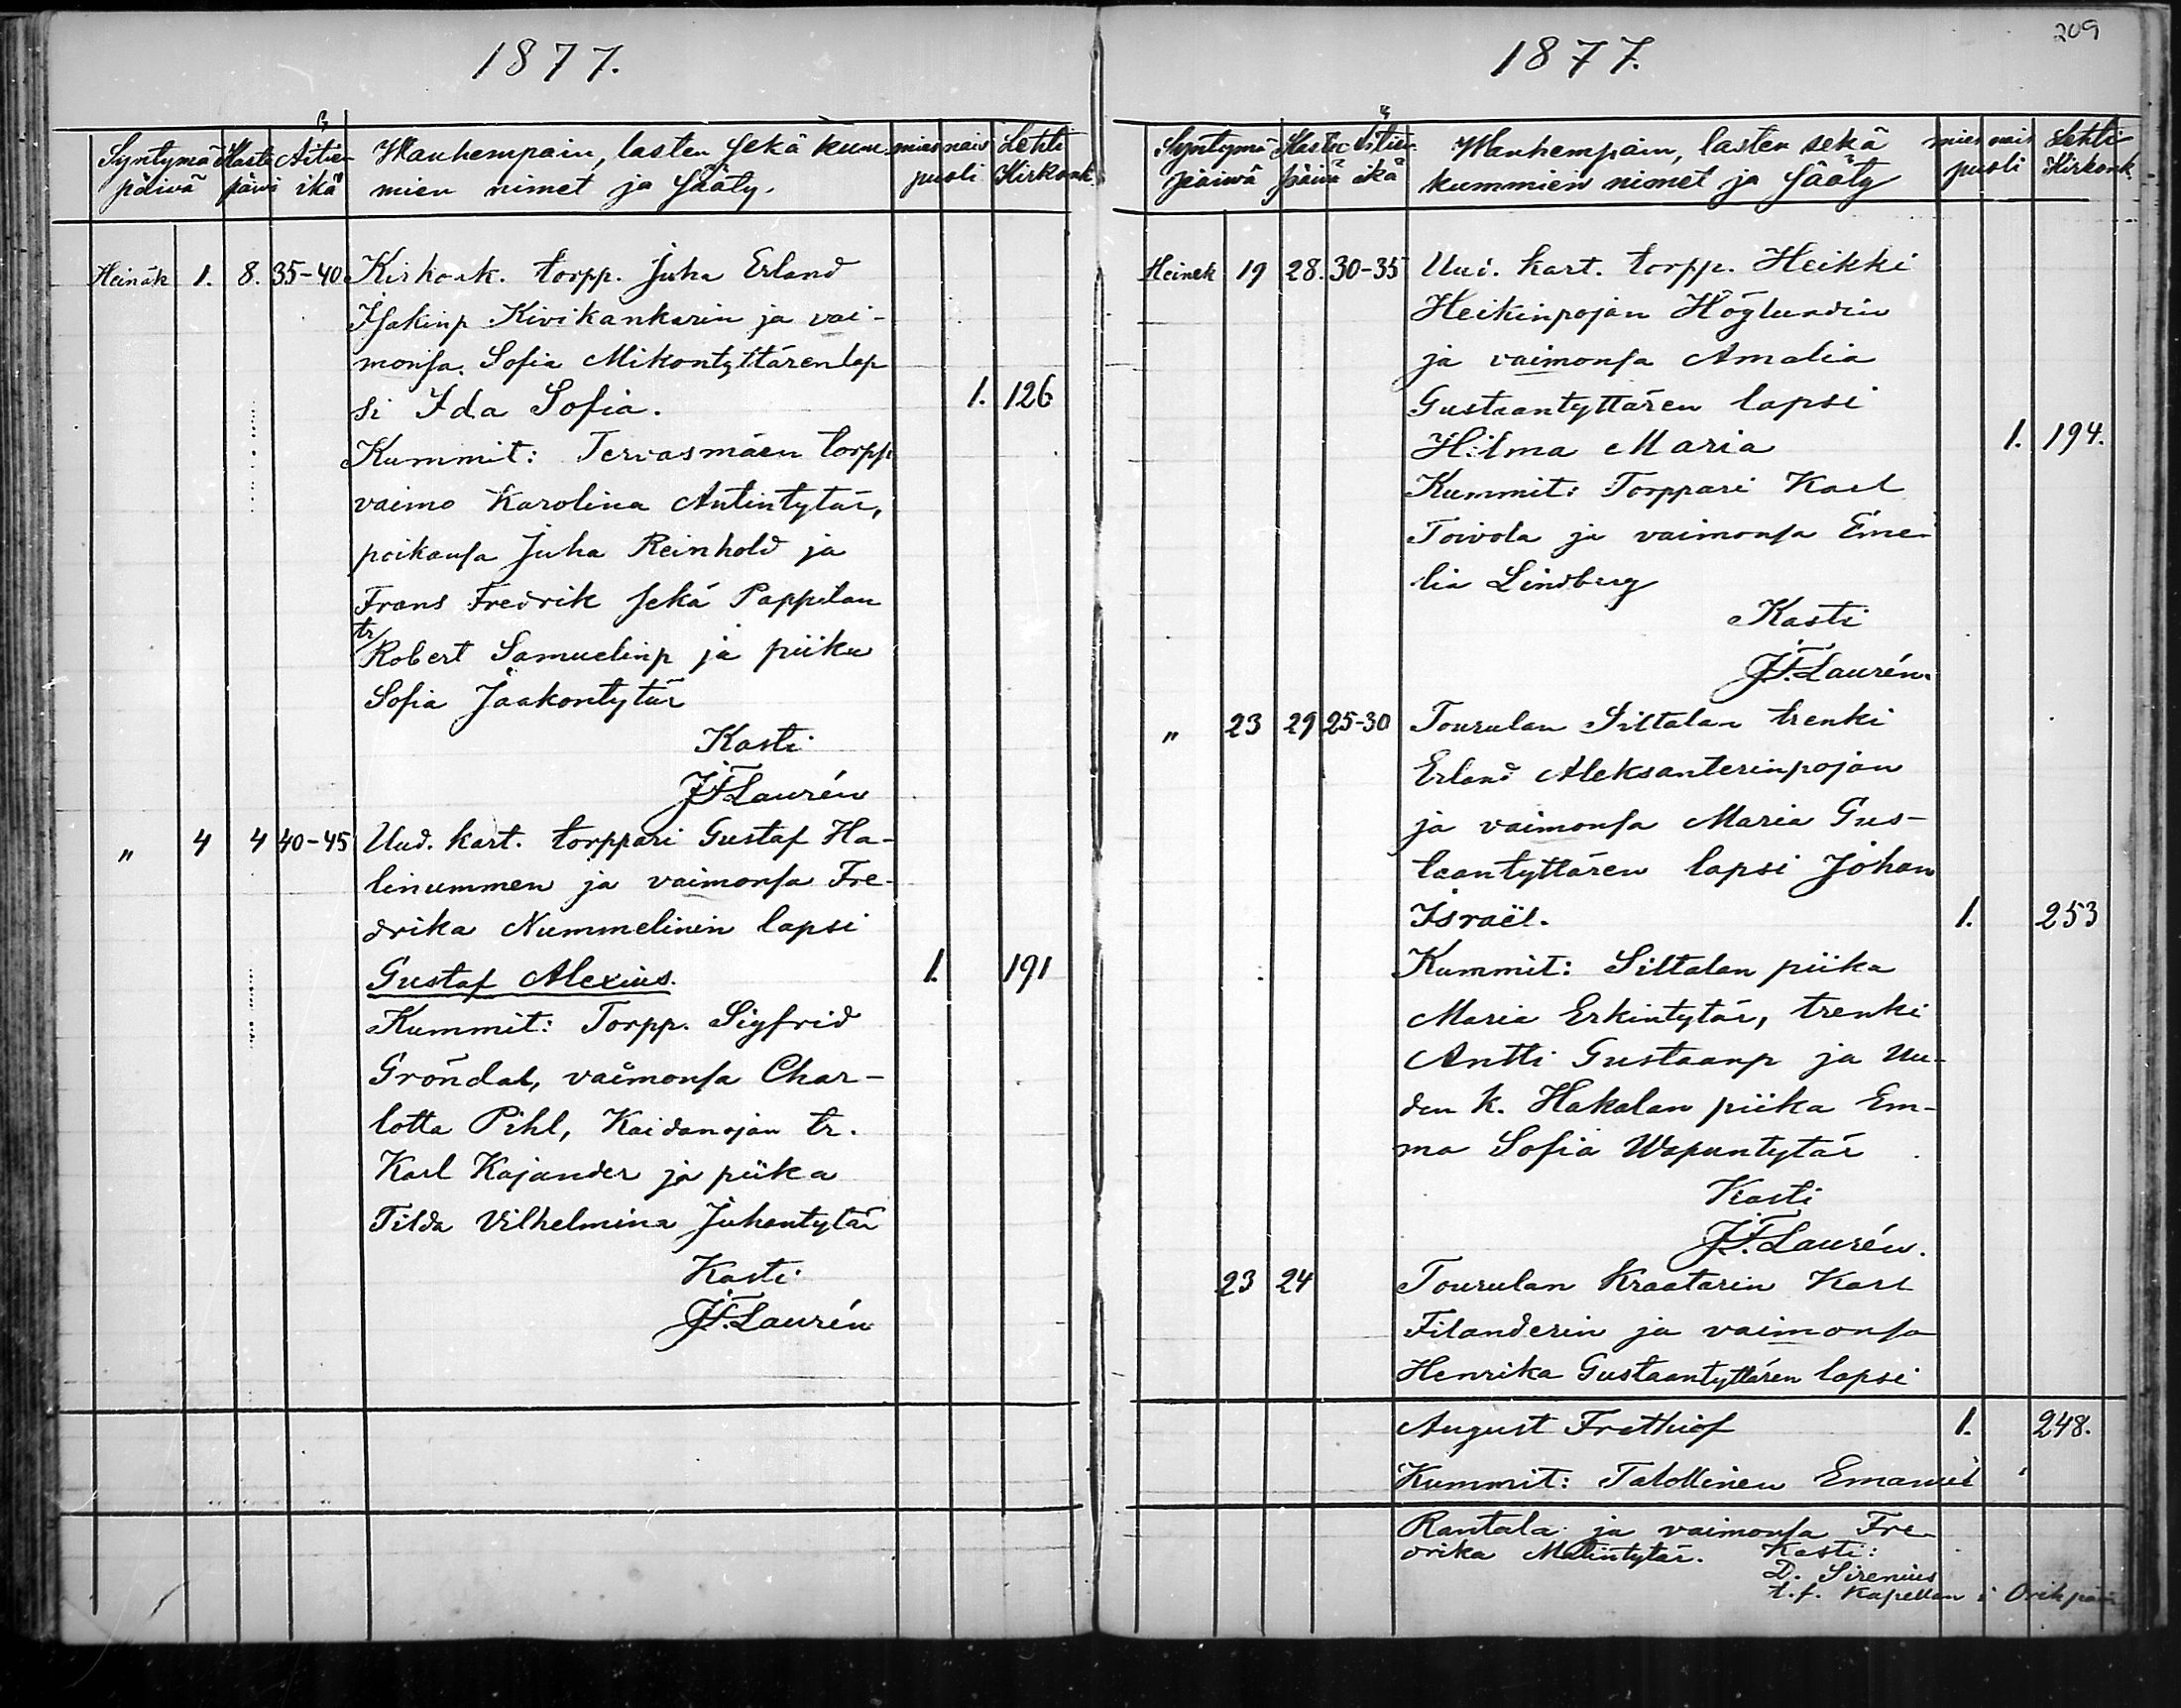 1877.
Syntymä Kaste Äitien Wanhempain, lasten sekä kum- mies nais Lehti
päivä päivä ikä mien nimet ja sääty. puoli Kirkonk.
Heinäk 1. 8. 35-40 Kirkonk. torpp. Juha Erland
Isakinp Kivikankarin ja vai-
monsa Sofia Mikontyttären lap
si Ida Sofia. 1. 126
Kummit: Tervasmäen torpp
vaimo Karolina Antintytär,
poikansa Juha Reinhold ja
Frans Fredrik sekä Pappilan
tr Robert Samuelinp ja piika
Sofia Jaakontytär
Kasti
J.F. Laurén
" 4 4 40-45 Uud. kart. torppari Gustaf Ha-
linummen ja vaimonsa Fre-
drika Nummelinin lapsi
Gustaf Alexius. 1. 191
Kummit: Torpp. Sigfrid
Gröndal, vaimonsa Char-
lotta Pihl, Kaidanojan tr.
Karl Kajander ja piika
Tilda Vilhelmina Juhantytär
Kasti
J.F. Laurén
209
1877.
Syntymä Kaste Äitien Wanhempain, lasten sekä mies nais Lehti
päivä päivä ikä kummien nimet ja sääty puoli Kirkonk.
Heinäk 19 28. 30-35 Uud. kart. torpp. Heikki
Heikinpojan Höglundin
ja vaimonsa Amalia
Gustaantyttären lapsi
Hilma Maria 1. 194.
Kummit: Torppari Karl
Toivola ja vaimonsa Eme-
lia Lindberg
Kasti
J.F. Laurén.
" 23 29 25-30 Tourulan Siltalan trenki
Erland Aleksanterinpojan
ja vaimonsa Maria Gus-
taantyttären lapsi Johan
Israël. 1. 253
Kummit: Siltalan piika
Maria Erkintytär, trenki
Antti Gustaanp ja Uu-
den k. Hakalan piika Em-
ma Sofia Wapuntytär
Kasti
J.F. Laurén.
23 24 Tourulan Kraatarin Karl
Filanderin ja vaimonsa
Henrika Gustaantyttären lapsi
August Frithiof 1. 248.
Kummit: Talollinen Emanuel
Rantala ja vaimonsa Fre-
drika Matintytär. Kasti:
D. Sirenius
t.f. Kapellan i Oripää